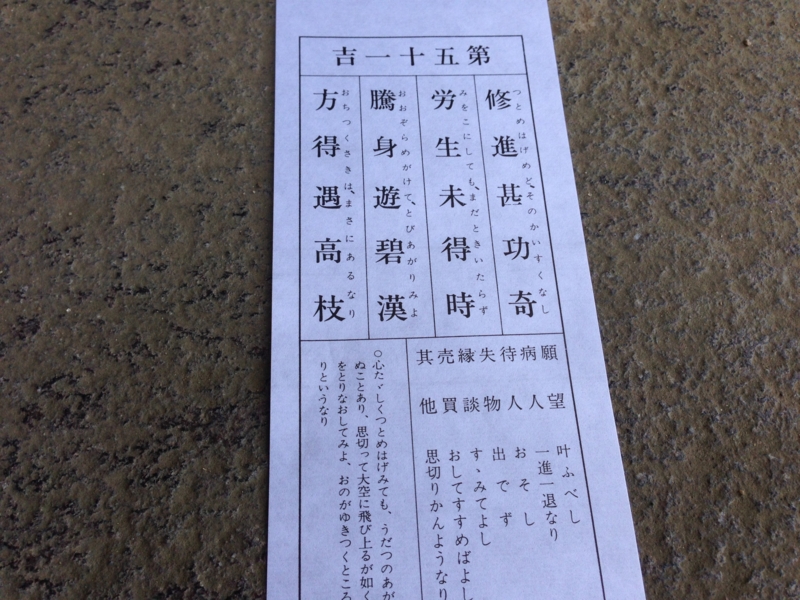 第五十一吉
修進甚功奇
つとめはげめど、そのかいすくなし
労生未得時
みをこにしても、まだときいたらず
騰身遊碧漢
おおぞらめがけて、とびあがりみよ
方得遇高枝
おちつくさきは、まさにあるなり
願望 叶ふべし
病人 一進一退なり
待人 おそし
失物 出でず
縁談 すゝみてよし
売買 おしてすすめばよし
其他 思切りかんようなり
○心たゞしくつとめはげみても、うだつのあが
ぬことあり、思切って大空に飛び上るが如く
をとりなおしてみよ、おのがゆきつくところ
りというなり